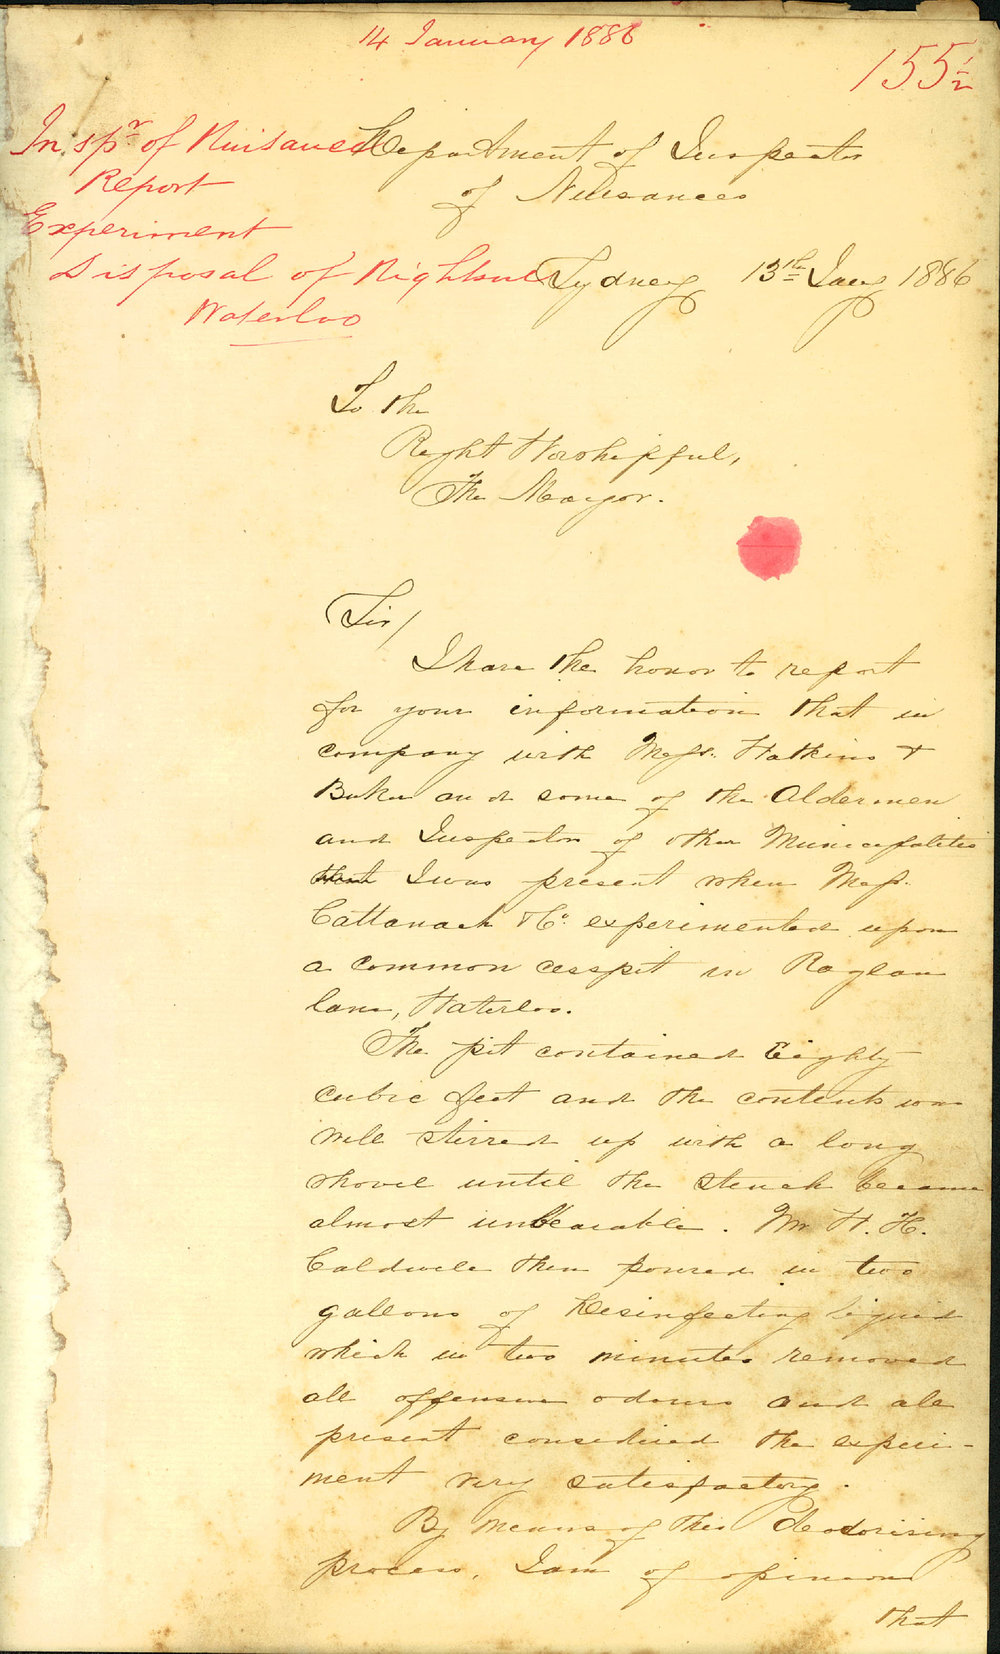 14 January 1886
155½
Inspr of Nuisances
Report
Experiment
Disposal of Nightsoil
Waterloo
Department of Inspector
of Nuisances
Sydney 13th Jany 1886
To the
Right Worshipful,
The Mayor.
Sir/
I have the honor to report
for your information that in
company with Messr. Watkins &
Baker and some of the Aldermen
and Inspector of other Municipalities
that I was present when Messr.
Cattanach & Co. experimented upon
a common cesspit in Raglan
lane, Waterloo.
The pit contained Eighty
cubic feet and the contents was
well stirred up with a long
shovel until the stench became
almost unbearable. Mr W. H.
Caldwell then poured in two
gallons of Desinfecting liquid
which in two minutes removed
all offensive odours and all
present considered the experi-
ment very satisfactory.
By means of this deodorising
process, I am of opinion
that